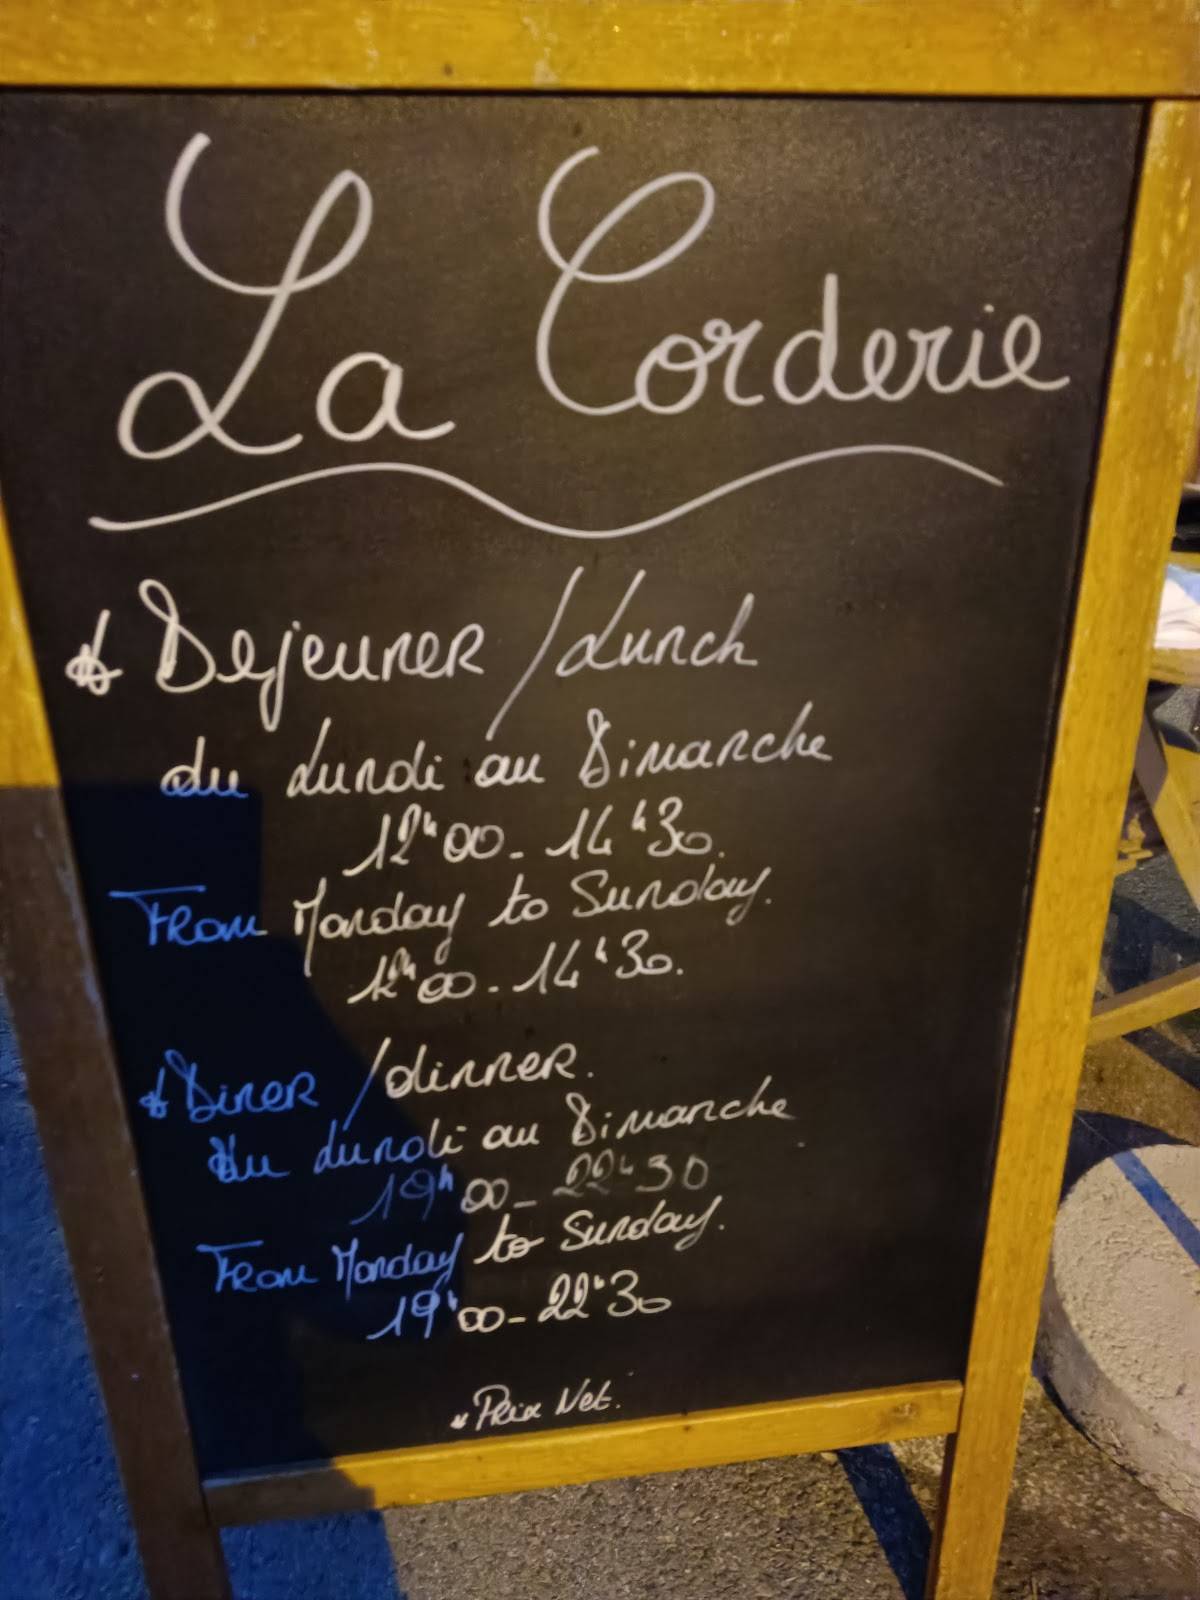 La Corderie
* Dejeuner / Lunch
du Lundi au Dimanche
12h00 - 14h30.
From Monday to Sunday.
12h00 - 14h30.
* Diner / dinner.
Du Lundi au Dimanche
19h00 - 22h30
From Monday to Sunday.
19h00 - 22h30
* Prix Net.